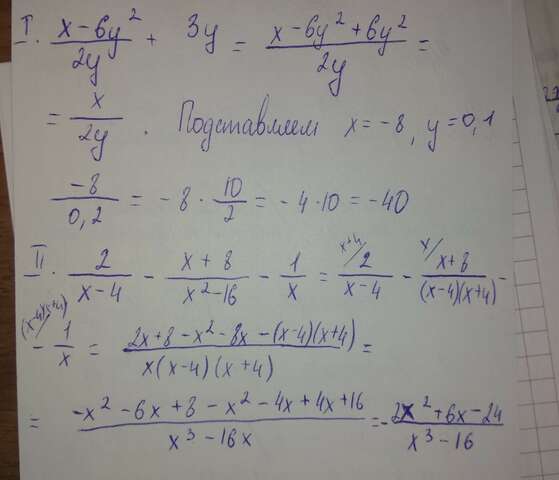 I. (x - 6y²)/(2y) + 3y = (x - 6y² + 6y²)/(2y) =
= x/(2y) . Подставляем x = -8, y = 0,1
-8/(0,2) = -8 · 10/2 = -4 · 10 = -40
II. 2/(x-4) - (x+8)/(x²-16) - 1/x = x+4/ 2/(x-4) - x/ (x+8)/((x-4)(x+4)) -
(x-4)(x+4)/ - 1/x = (2x+8-x²-8x-(x-4)(x+4))/(x(x-4)(x+4)) =
= (-x²-6x+8-x²-4x+4x+16)/(x³-16x) = -(2x²+6x-24)/(x³-16)